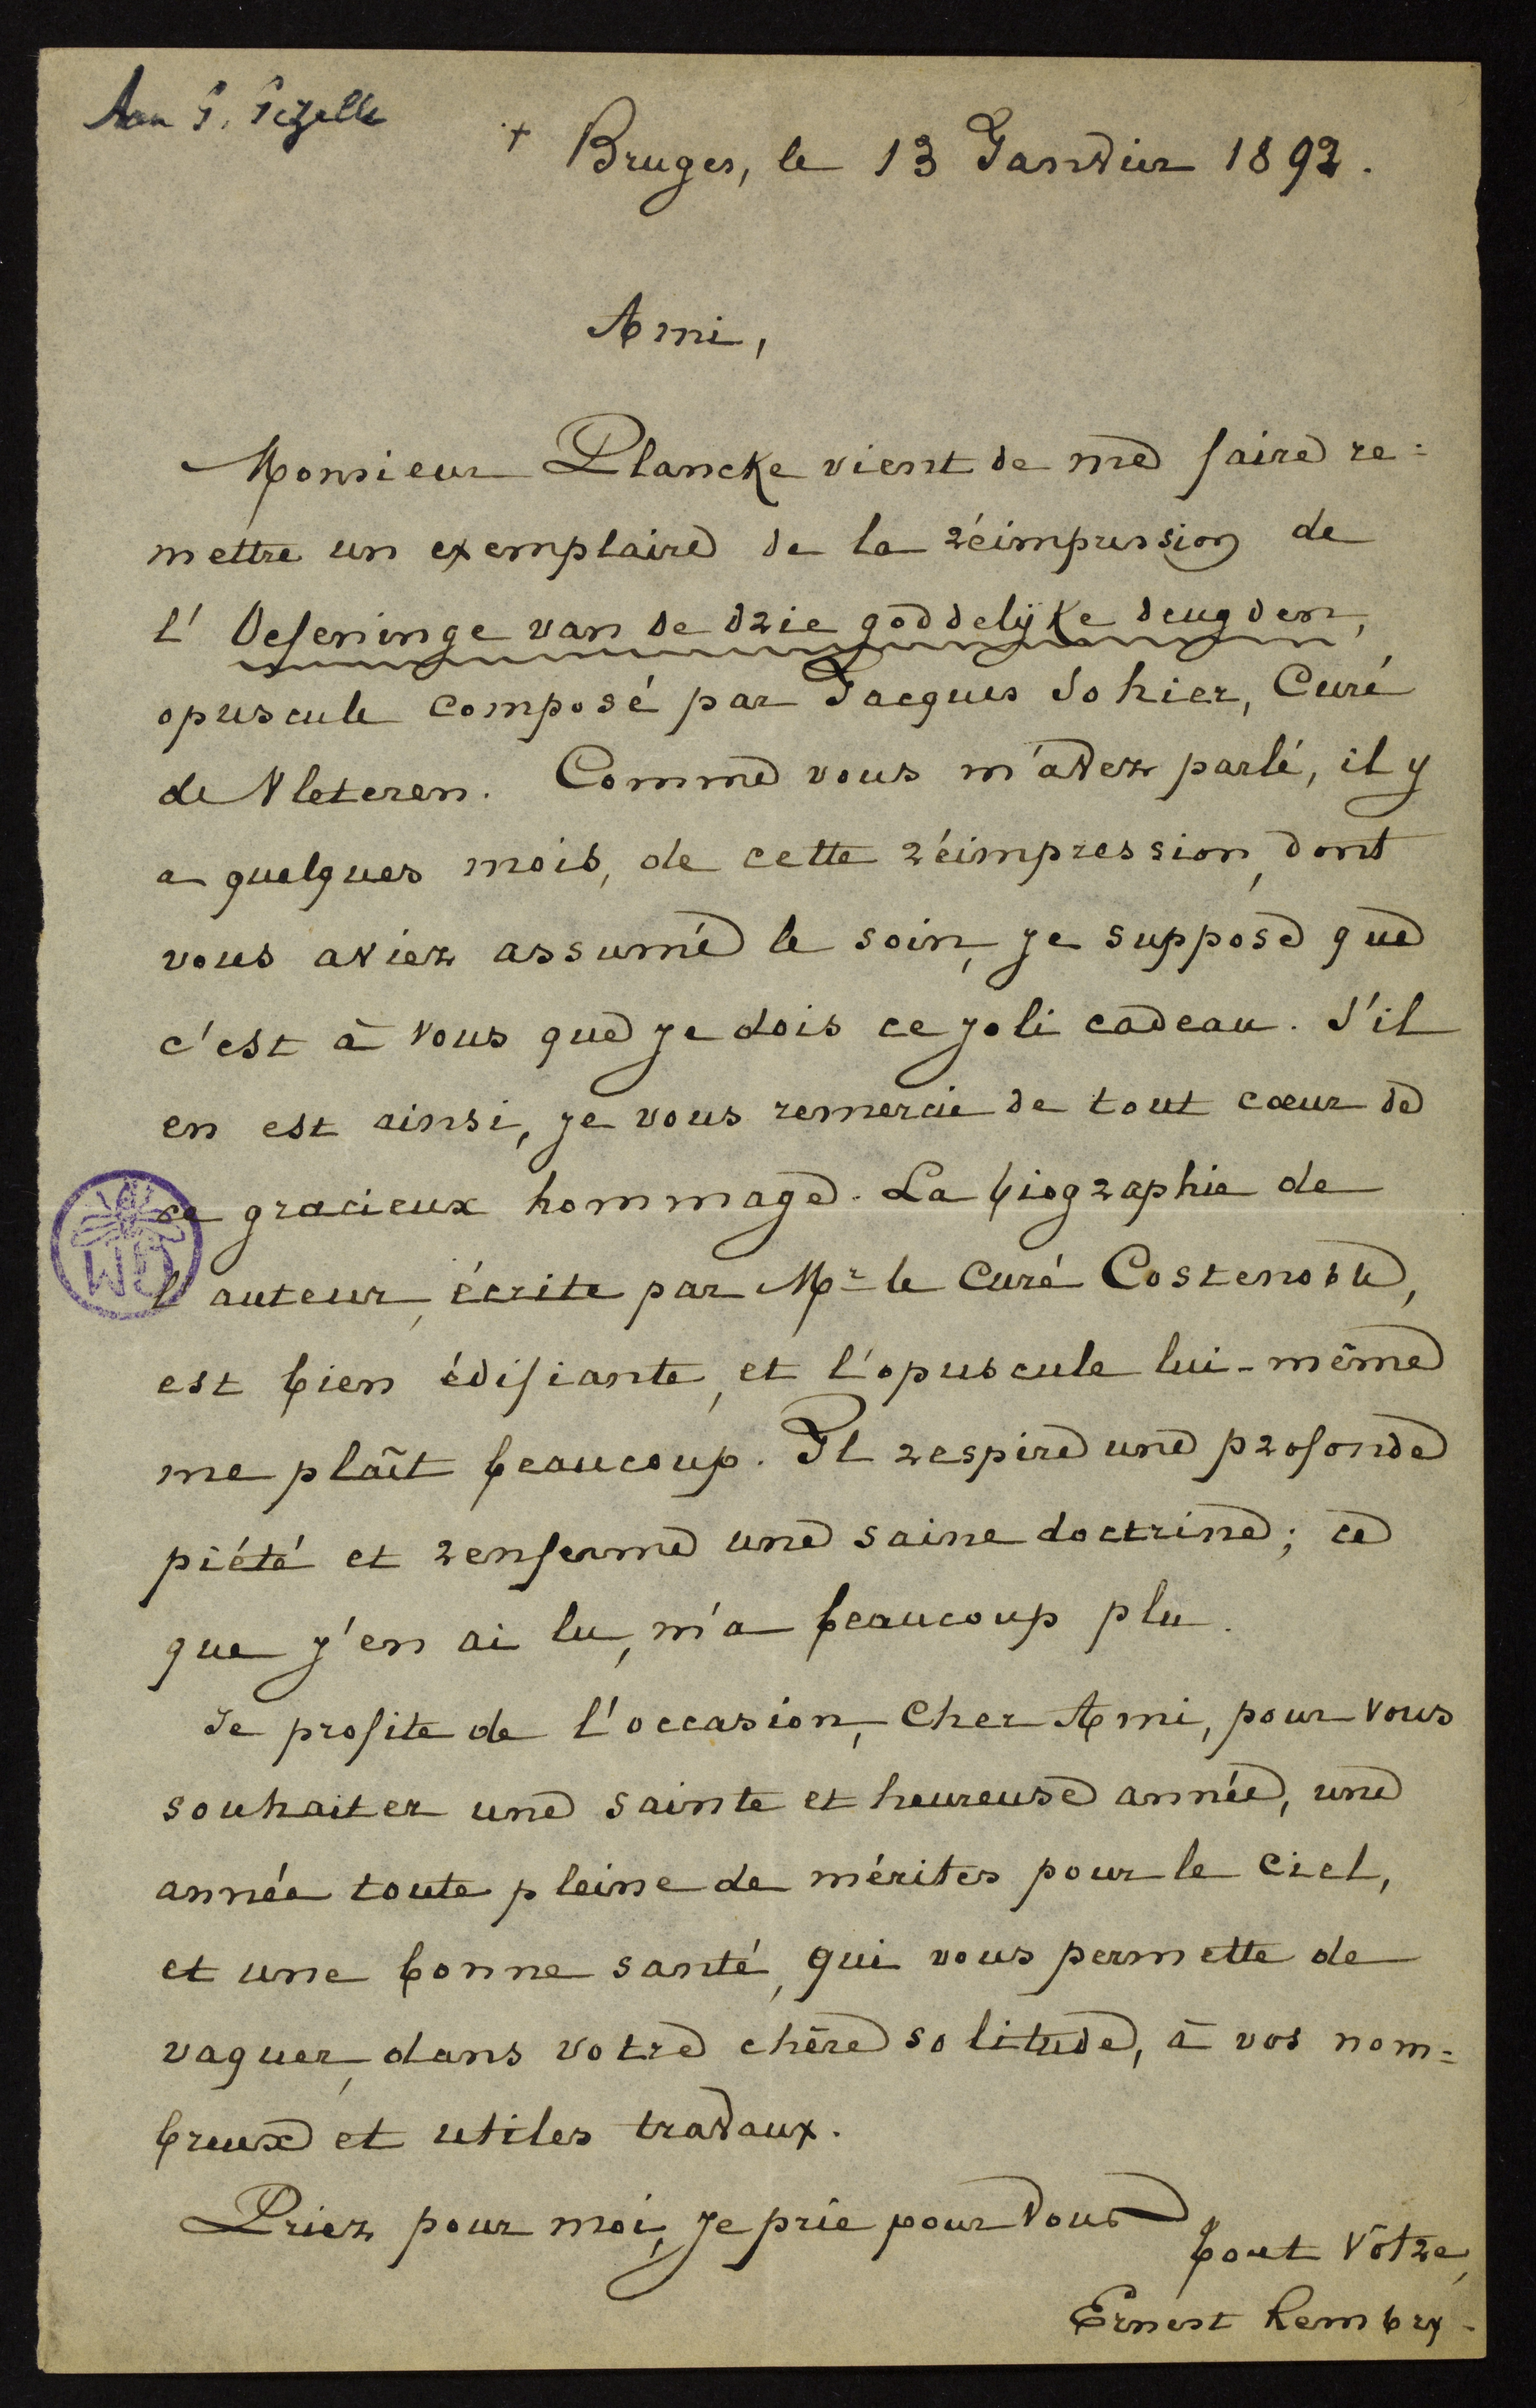 Aan G. Gezelle
+ Bruges, le 13 Janvier 1892.
Ami,
Monsieur Plancke vient de me faire re=
mettre un exemplaire de la réimpression de
l'Oefeninge van de drie goddelijke deugden,
opuscule composé par Jacques Sohier, Curé
de Vleteren. Comme vous m'avez parlé, il y
a quelques mois, de cette réimpression, dont
vous aviez assumé le soin, je suppose que
c'est à vous que je dois ce joli cadeau. S'il
en est ainsi, je vous remercie de tout cœur de
ce gracieux hommage. La biographie de
l'auteur, écrite par Mr le Curé Costenoble,
est bien édifiante, et l'opuscule lui-même
me plaît beaucoup. Il respire une profonde
piété et renferme une saine doctrine; ce
que j'en ai lu, m'a beaucoup plu.
Je profite de l'occasion, Cher Ami, pour vous
souhaiter une sainte et heureuse année, une
année toute pleine de mérites pour le Ciel,
et une bonne santé, qui vous permette de
vaquer, dans votre chère solitude, à vos nom=
breux et utiles travaux.
Priez pour moi, je prie pour vous
tout vôtre,
Ernest Rembry.